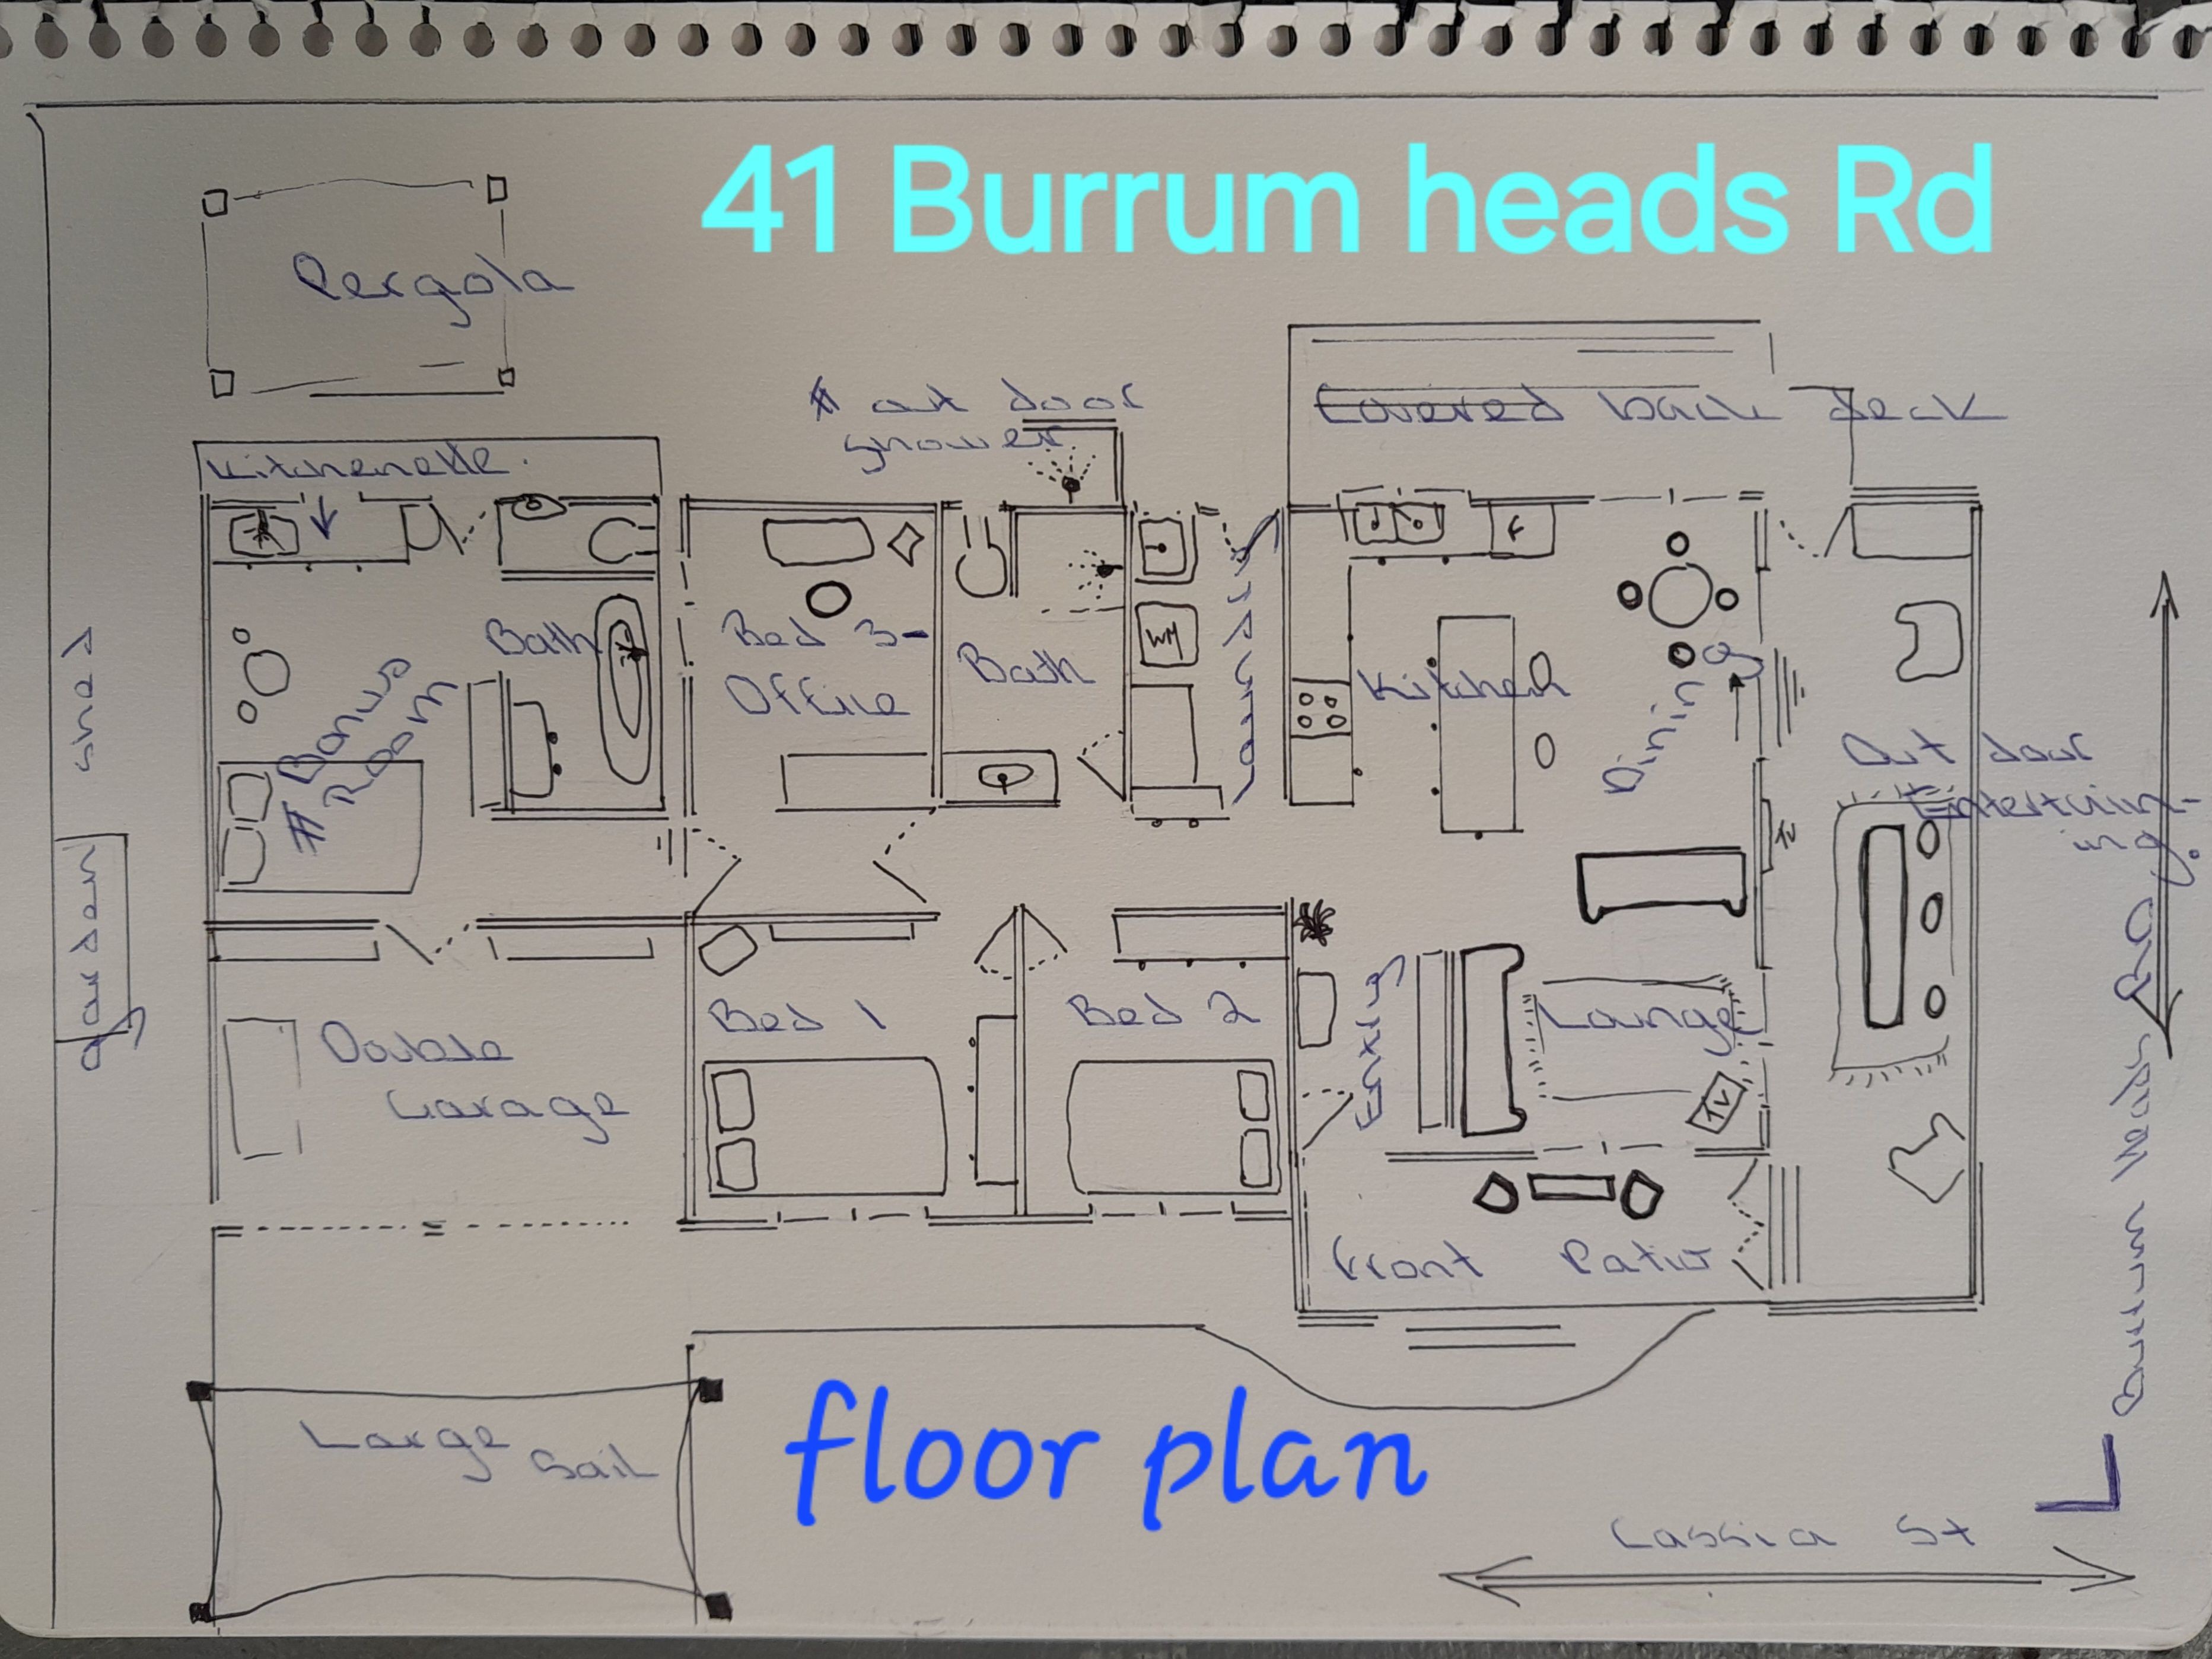 41 Burrum heads Rd
Pergola
# out door
shower
Covered back deck
Kitchenette.
F
WM
Laundry
Bath
Bed 3-
Office
Bath
Kitchen
Dining
# Bonus
Room
shed
garden
Out door
Entertain-
ing.
TV
Double
Garage
Bed 1
Bed 2
Entry
Lounge
TV
Front Patio
Burrum heads Rd
Large Sail
floor plan
Cassia St